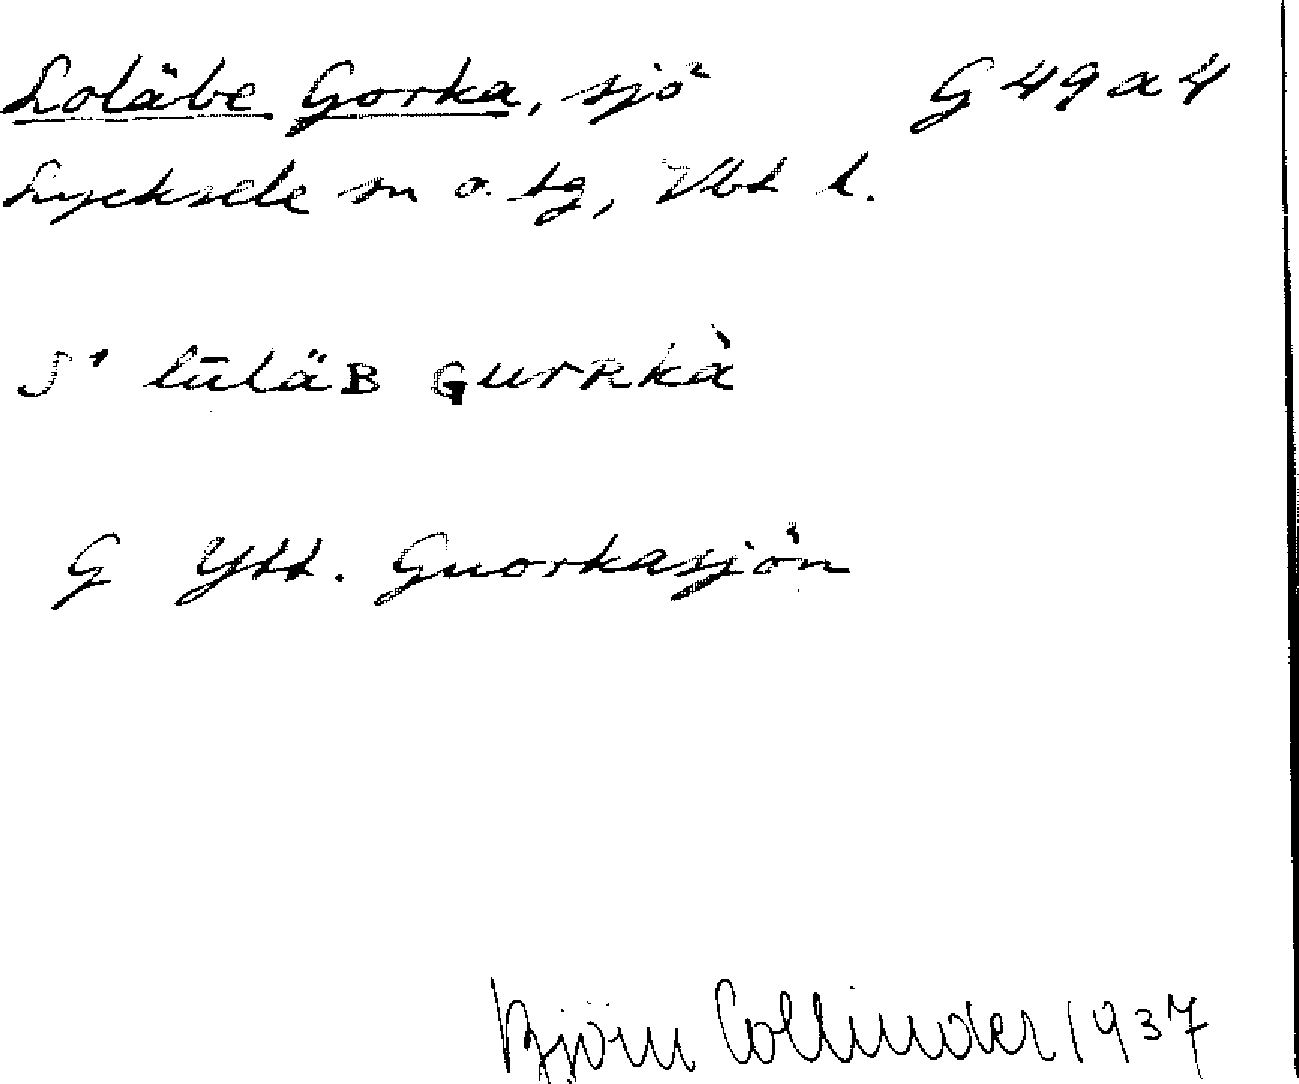 Loläbe Gorka, sjö G 49 a 4
Lycksele sn o. tg, Vbt l.
S¹ lūläB GurRkà
G Ytt. Guorkasjön
Björn Collinder 1937